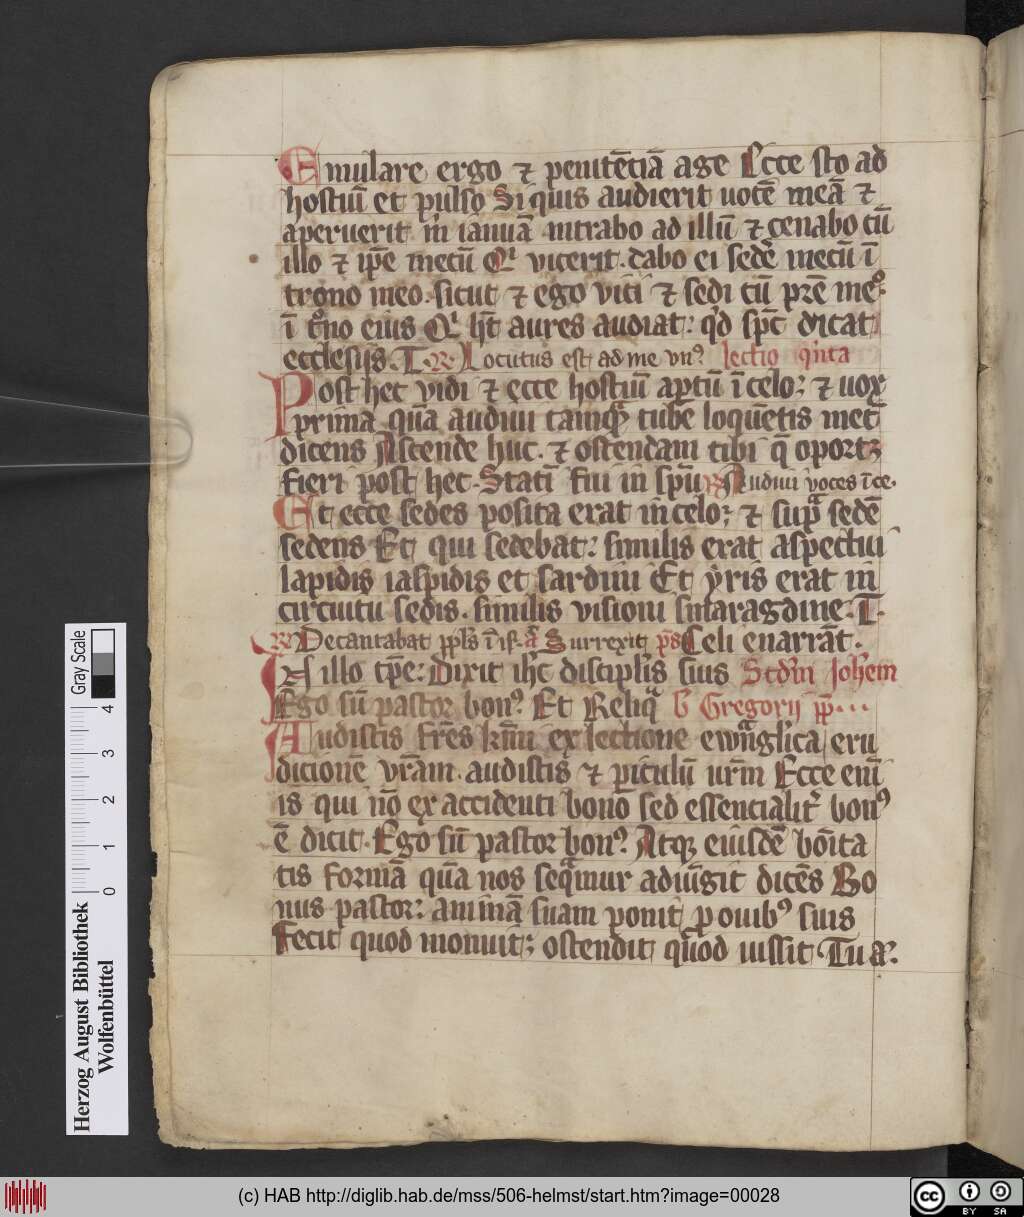 Emulare ergo ⁊ penitētiā age Ecce sto ad
hostiū et pulso Si quis audierit uocē meā ⁊
aperuerit m̄ ianuā intrabo ad illū ⁊ cenabo cū
illo ⁊ ip̄e mecū Qͥ vicerit. dabo ei sedē mecū ī
trono meo. sicut ⁊ ego vici ⁊ sedi cū pr̄e meº.
ī tͦno eius Qͥ hꝫt aures audiat: qͥd sp̄c dicat
ecclesijs. T. R. Locutus est ad me vnꝰ lectio qͥnta
Post hec vidi ⁊ ecce hostiū aꝑtū ī celo; ⁊ uox
prima quā audiui tamqͣ tubē loquētis mecū
dicens Ascende huc. ⁊ ostendam tibi q̄ oportꝫ
fieri post hec. Statī fui in sp̄u R. Audiui voces ī ce.
Et ecce sedes posita erat in celo; ⁊ supͣ sedē
sedens Et qui sedebat: similis erat aspectui
lapidis iaspidis et sardini Et yris erat in
circuitu sedis. similis visioni smaragdine. T.
R Decantabat pp̄ls ī isͬ. a Surrexit ps Celi enarrāt.
In illo tp̄e: Dixit ih̄c discipl̄is suis Scd̄m Joh̄em
Ego sū pastor bonꝰ Et Reliqͣ b̄ Gregorij pp̄...
Audistis fr̄es kr̄mi ex lectione ewāglica eru
dicionē vr̄am. audistis ⁊ ꝑiculū ur̄m Ecce eni
is qui nō ex accidenti bono sed essencialitͬ bonꝰ
ē dicit. Ego sū pastor bonꝰ Atqꝫ eiusdē bōita
tis formā quā nos seqͣmur adiūgit dicēs Bo
nus pastor: animā suam ponit ꝓ ouibꝰ suis
Fecit quod monuit; ostendit quod iussit Tu aͬ.
Herzog August Bibliothek
Wolfenbüttel
Gray Scale
0 1 2 3 4
(c) HAB http://diglib.hab.de/mss/506-helmst/start.htm?image=00028
cc BY SA